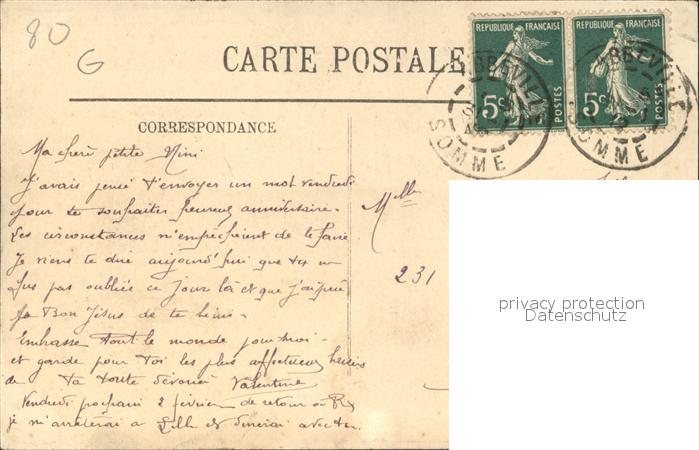 80
G
CARTE POSTALE
REPUBLIQUE FRANÇAISE
5c
POSTES
REPUBLIQUE FRANÇAISE
5c
POSTES
ABBEVILLE
SOMME
ABBEVILLE
SOMME
CORRESPONDANCE
Ma chère petite Mimi
J'avais pensé t'envoyer un mot vendredi
pour te souhaiter heureux anniversaire.
Les circonstances m'empêchèrent de le faire
Je viens te dire aujourd'hui que tu
pas oubliée ce jour là et que j'ai prié
Bon Jésus de te bénir.
Embrasse tout le monde pour moi
et garde pour toi les plus affectueux baisers
de Ta toute dévouée Valentine
Vendredi prochain 2 février de retour
je m'arrêterai à Lille et dinerai avec
Melle
231
privacy protection
Datenschutz